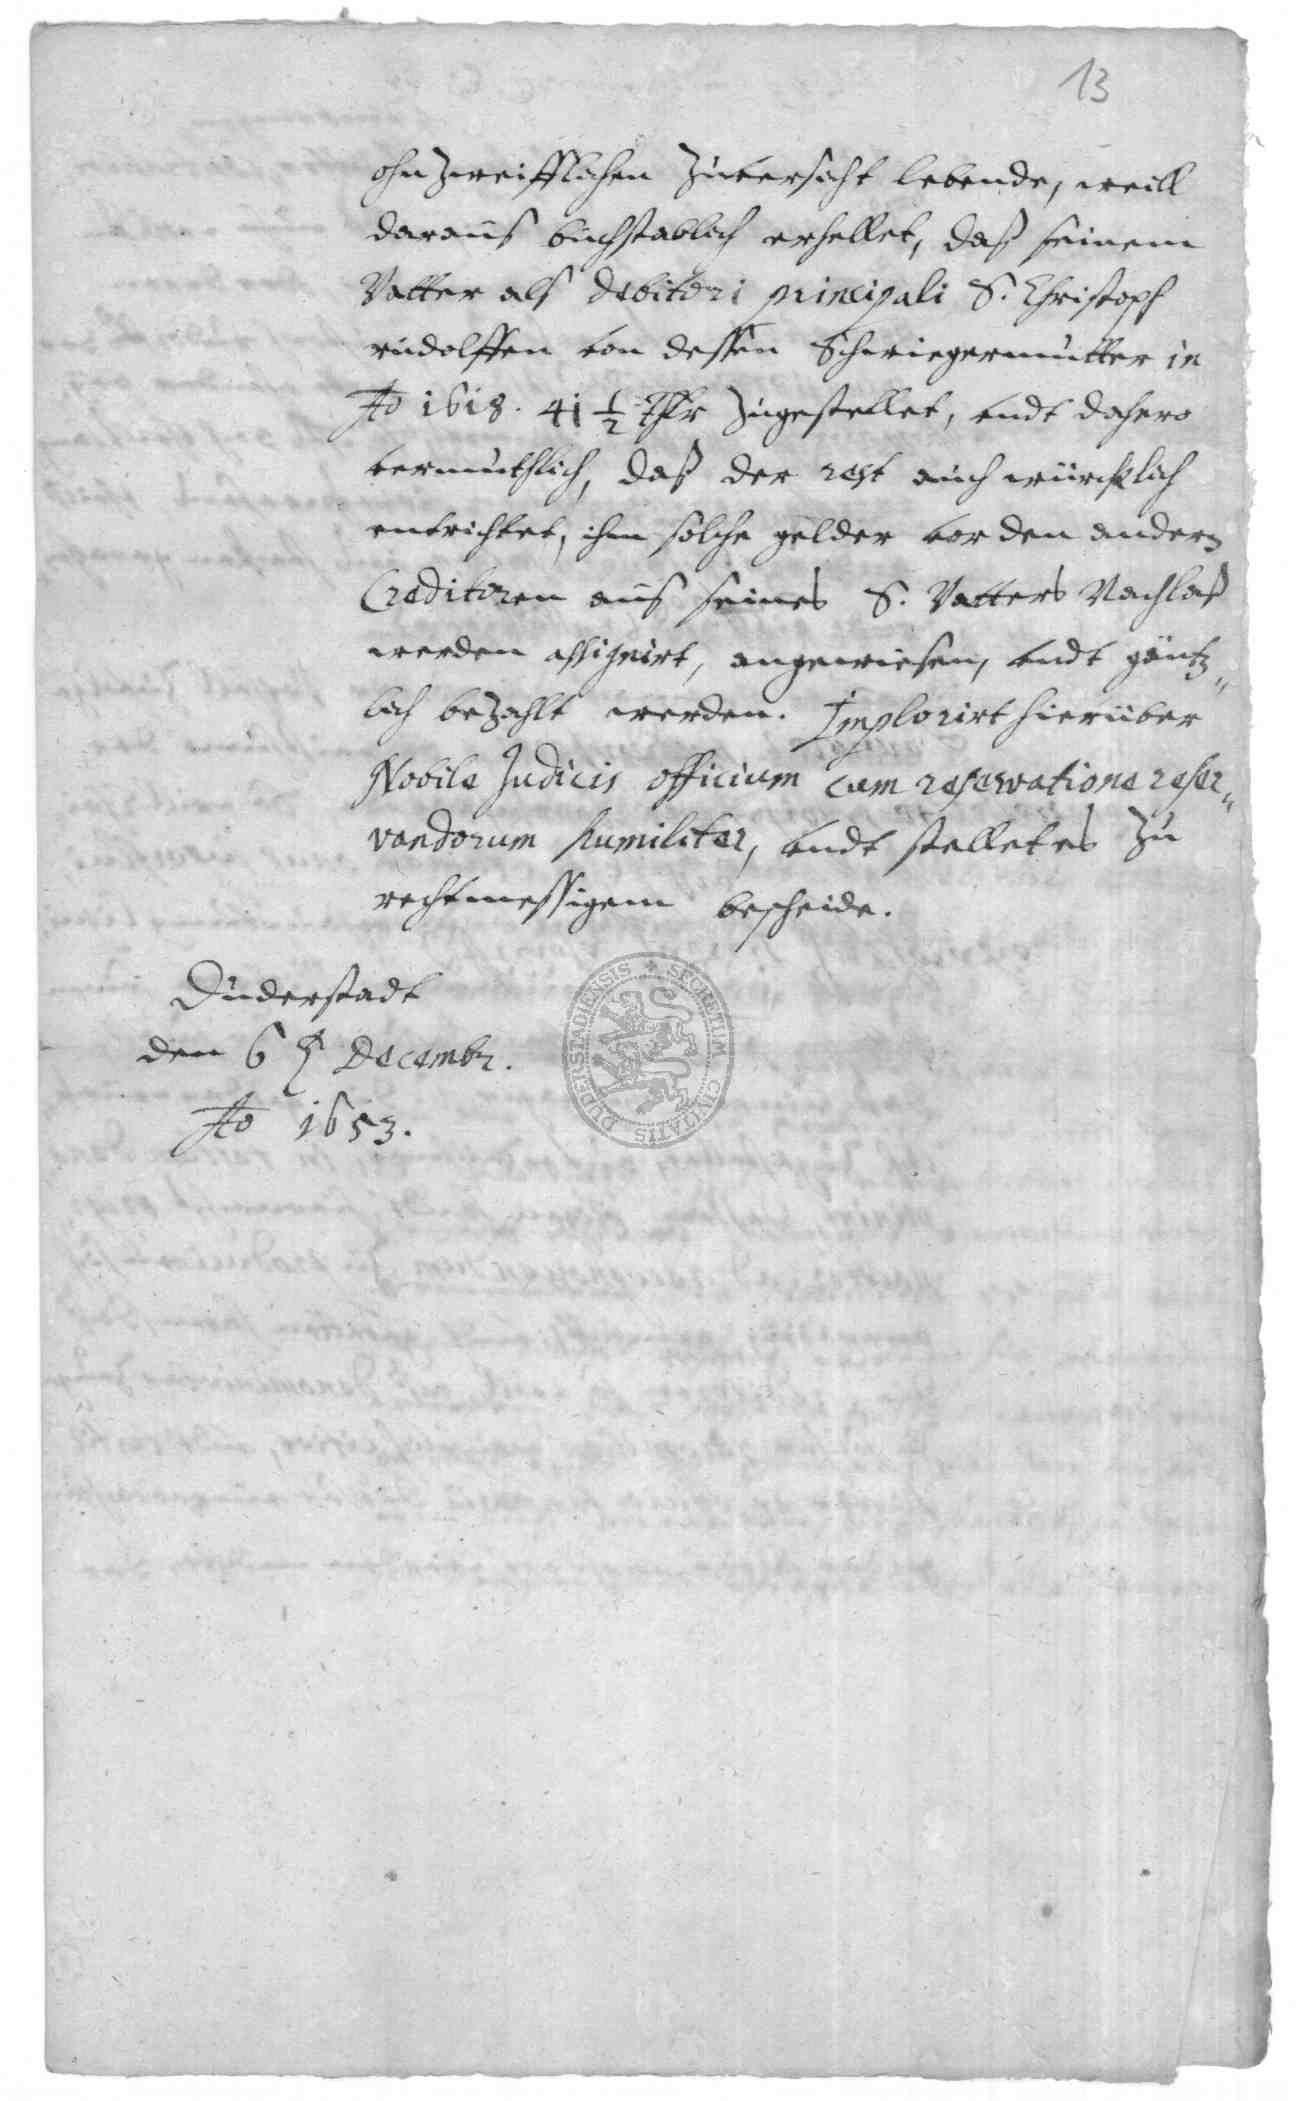 13
ohnzweifflichen Zuversicht lebende, weill
daraus buchstablich erhellet, daß seinem
Vatter als debitori principali S. Christoph
rudolffen von dessen Schwiegermutter in
Ao 1618. 41 1/2 Thlr zugestellet, undt dahero
vermuthlich, daß der rest auch würcklich
entrichtet, ihm solche gelder vor den andern
Creditoren aus seines S. Vatters Nachlaß
werden assignirt, angewiesen, undt gäntz„
lich bezahlt werden. Implorirt hierüber
Nobile Judicis officium cum reservatione reser„
vandorum humiliter, undt stellet es zu
rechtmessigem bescheide.
Duderstadt
den 6 Decembr.
Ao 1653.
SECRETUM CIVITATIS DUDERSTADIENSIS